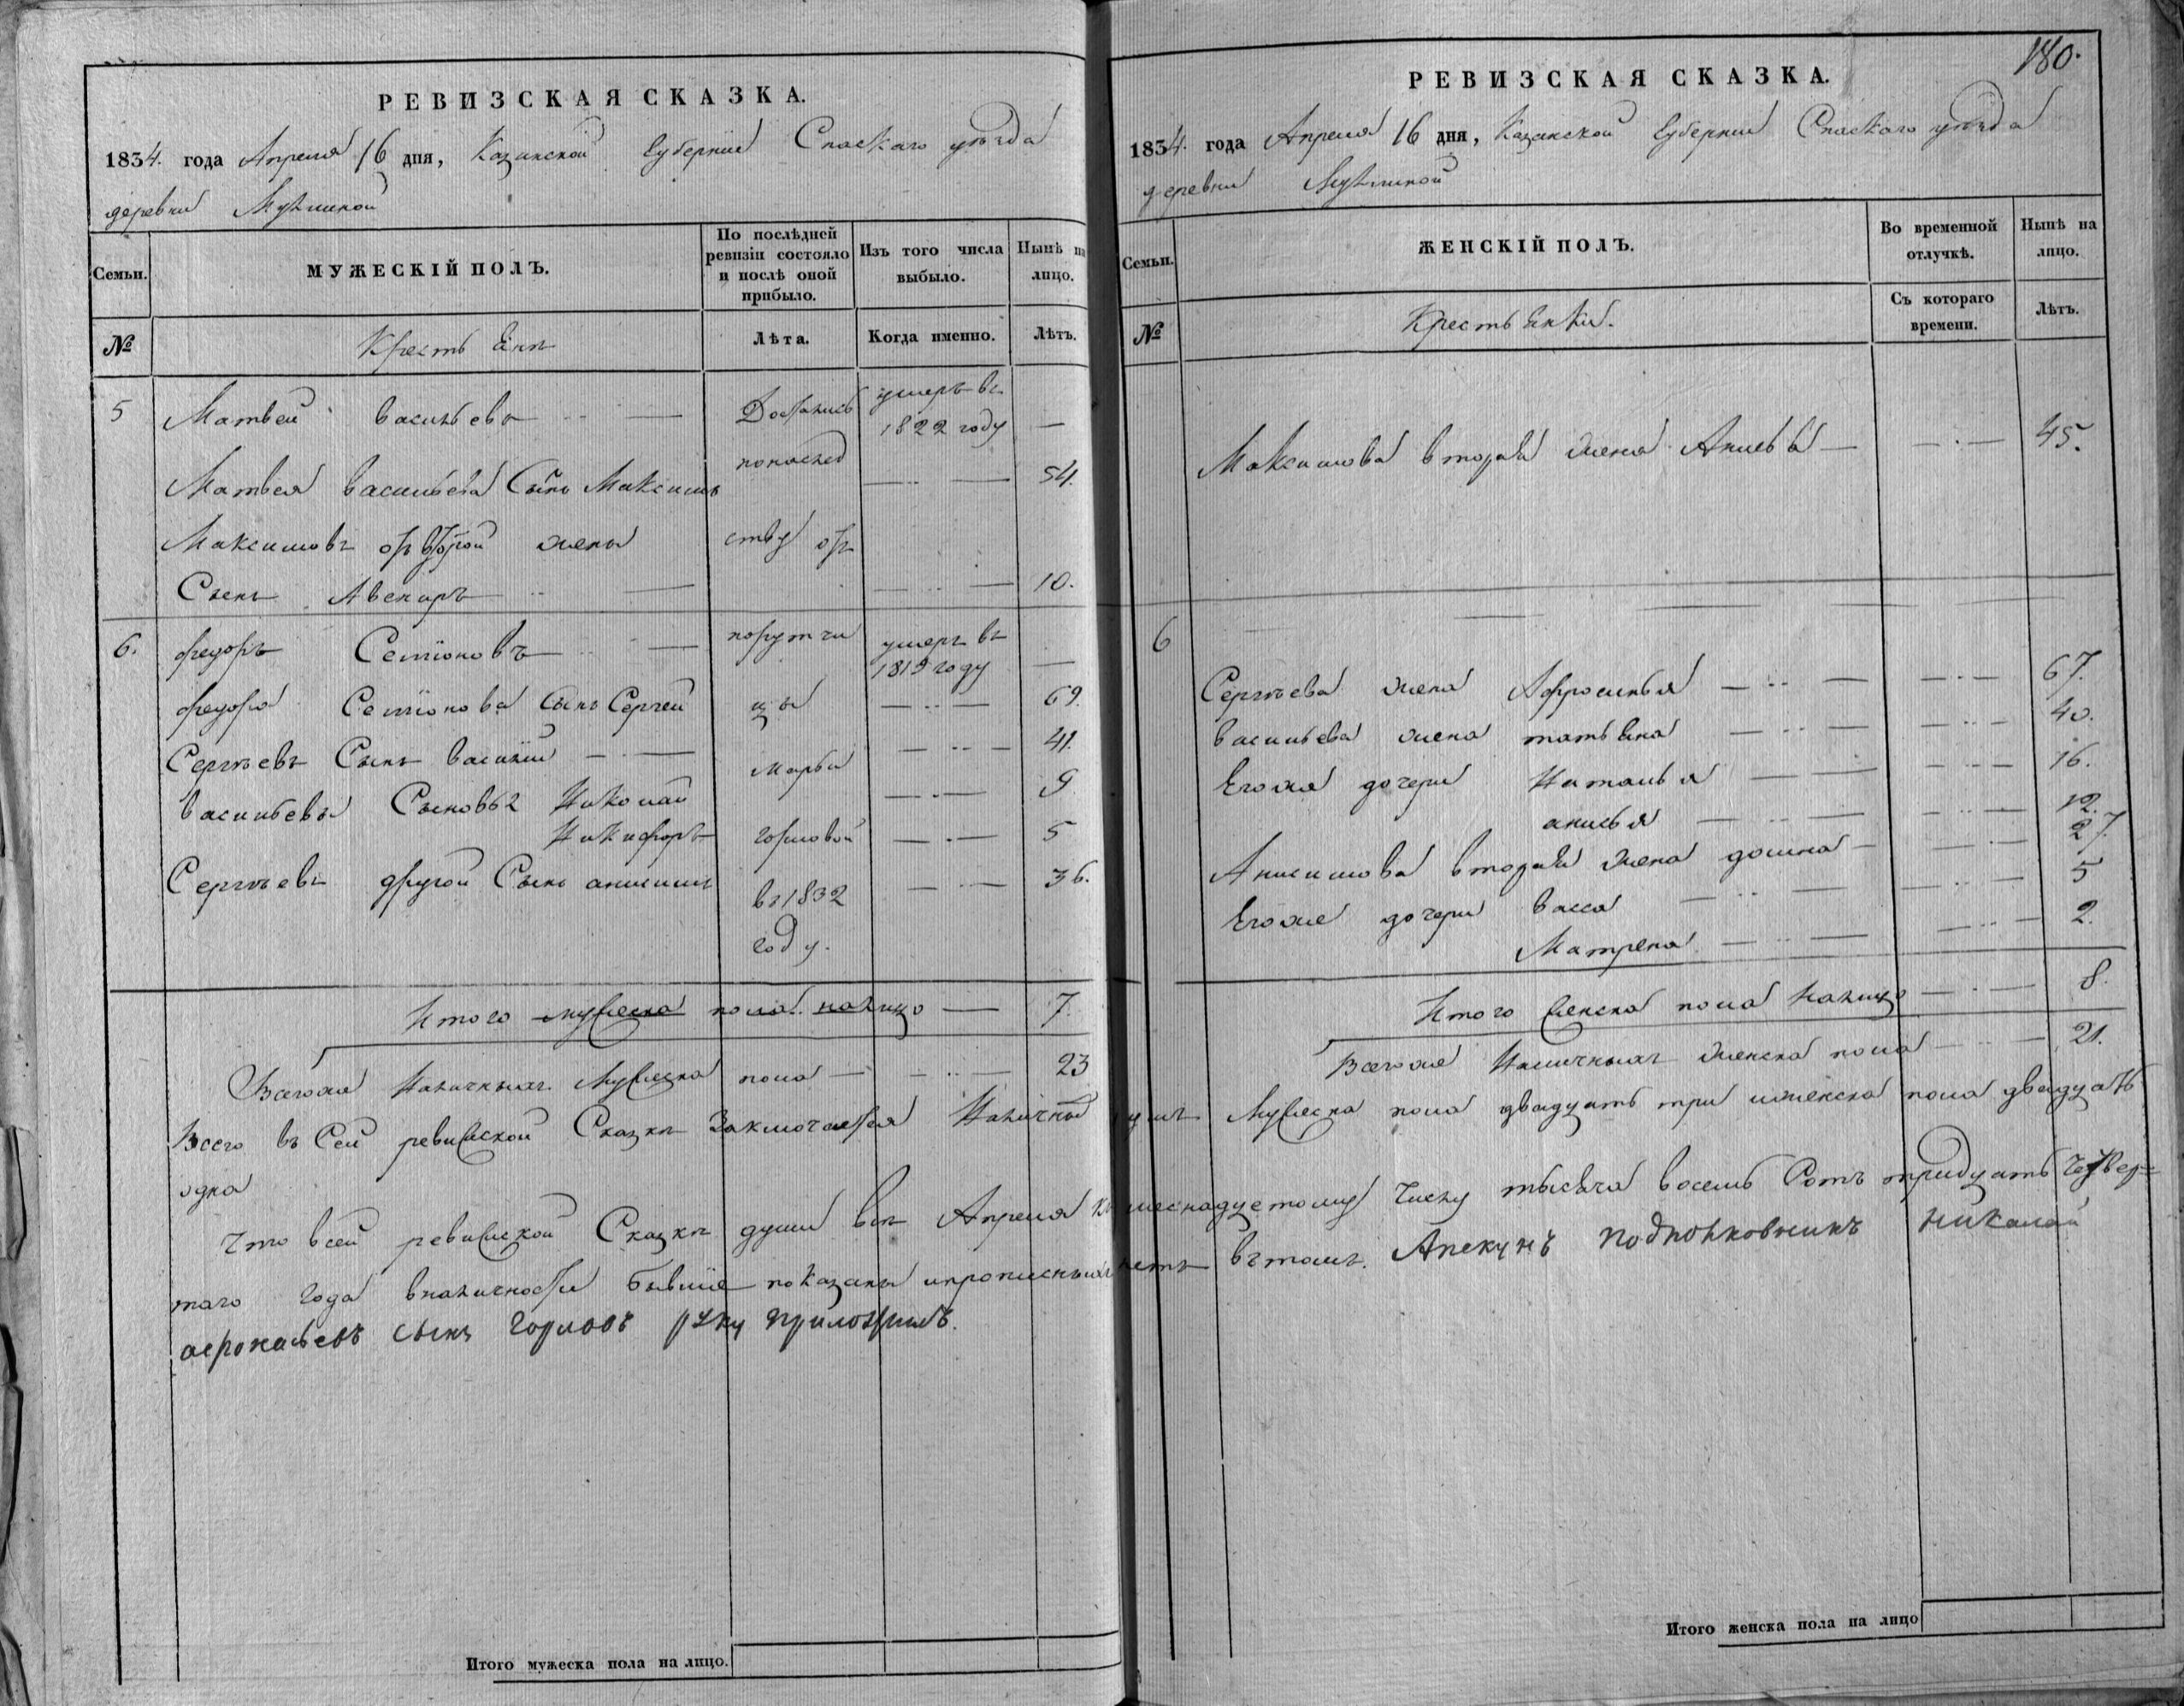 РЕВИЗСКАЯ СКАЗКА.
1834. года Апреля 16 дня, Казанской Губернии Спаскаго уѣзда
деревни
Семьи.
МУЖЕСКІЙ ПОЛЪ.
По послѣдней ревизіи состояло и послѣ оной прибыло.
Изъ того числа выбыло.
Нынѣ на лицо.
№
Крестьяне
Лѣта.
Когда именно.
Лѣтъ.
5 Матвей васильевъ Достались умеръ въ 1822 году —
Матвея васильева Сынъ Максимъ понаслед 54.
Максимовъ отъ второй жены ству отъ
Сынъ Авениръ 10.
6. федоръ Семіоновъ порутчи умеръ въ 1819 году —
федора Семіонова Сынъ Сергей цы 69.
Сергѣевъ Сынъ василий Марьи 41.
васильевы Сыновья Николай 9
Никифоръ горловой 5
Сергѣевъ другой Сынъ анисимъ въ 1832 36.
году.
Итого мужеска пола налицо — 7.
Всегоже Наличныхъ Мужеска пола — 23
РЕВИЗСКАЯ СКАЗКА.
180.
1834. года Апреля 16 дня, Казанской Губернии Спаскаго уѣзда
деревни
Семьи.
ЖЕНСКІЙ ПОЛЪ.
Во временной отлучкѣ.
Нынѣ на лицо.
№
Крестьянки.
Съ котораго времени.
Лѣтъ.
Максимова вторая жена 45.
6
Сергѣева жена Афросинья 67.
васильева жена татьяна 40.
Егоже дочери Наталья 16.
анисья 12.
Анисимова вторая жена домна 27.
Егоже дочери васса 5
Матрена 2.
Итого женска пола налицо 8.
Всегоже Наличныхъ женска пола 21.
Всего въ Сей ревиской Сказке Заключается Наличныхъ душъ Мужеска пола двадцать три иженска пола двадцать
одна
Что всей ревиской Сказке души все Апреля къ шеснадцетому Числу тысяча восемь Сотъ тридцать Четвер=
таго года вналичности бывшіе показаны ипрописныхъ нетъ вътомъ. Апекунъ подполковникъ николай
афонасьевъ сынъ горловъ руку приложилъ.
Итого мужеска пола на лицо.
Итого женска пола на лицо